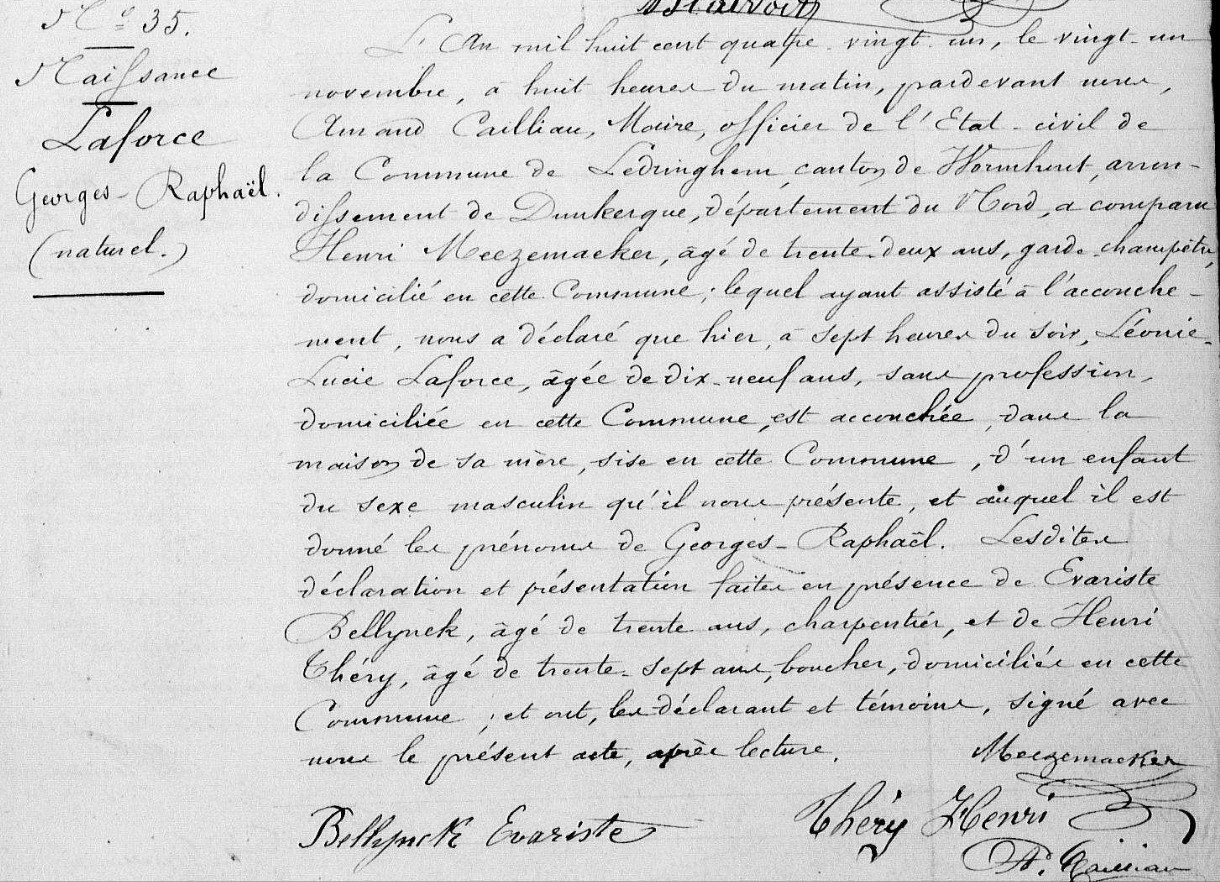 Nº 35.
Naissance
Laforce
Georges-Raphaël.
(naturel.)
L'An mil huit cent quatre-vingt-un, le vingt-un
novembre, à huit heures du matin, pardevant nous,
Amand Cailliau, Maire, officier de l'Etat-civil de
la Commune de Ledringhem, canton de Wormhout, arron-
dissement de Dunkerque, département du Nord, a comparu
Henri Meezemaeker, âgé de trente-deux ans, garde-champêtre,
domicilié en cette Commune; lequel ayant assisté à l'accouche-
ment, nous a déclaré que hier, à sept heures du soir, Léonie-
Lucie Laforce, âgée de dix-neuf ans, sans profession,
domiciliée en cette Commune, est accouchée, dans la
maison de sa mère, sise en cette Commune, d'un enfant
du sexe masculin qu'il nous présente, et auquel il est
donné les prénoms de Georges-Raphaël. Lesdites
déclaration et présentation faites en présence de Evariste
Bellynck, âgé de trente ans, charpentier, et de Henri
Théry, âgé de trente-sept ans, boucher, domiciliés en cette
Commune; et ont, les déclarant et témoins, signé avec
nous le présent acte, après lecture.
Meezemaeker
Bellynck Evariste
Théry Henri
Ad. Cailliau